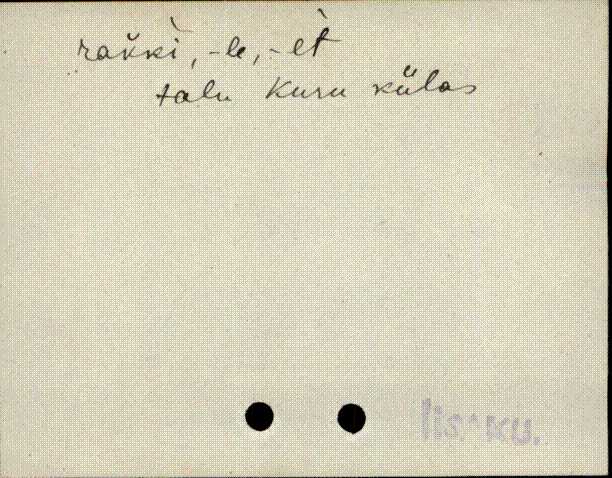 raǩki̇̀, -le, -èt
talu Kuru külas
lis. ku.